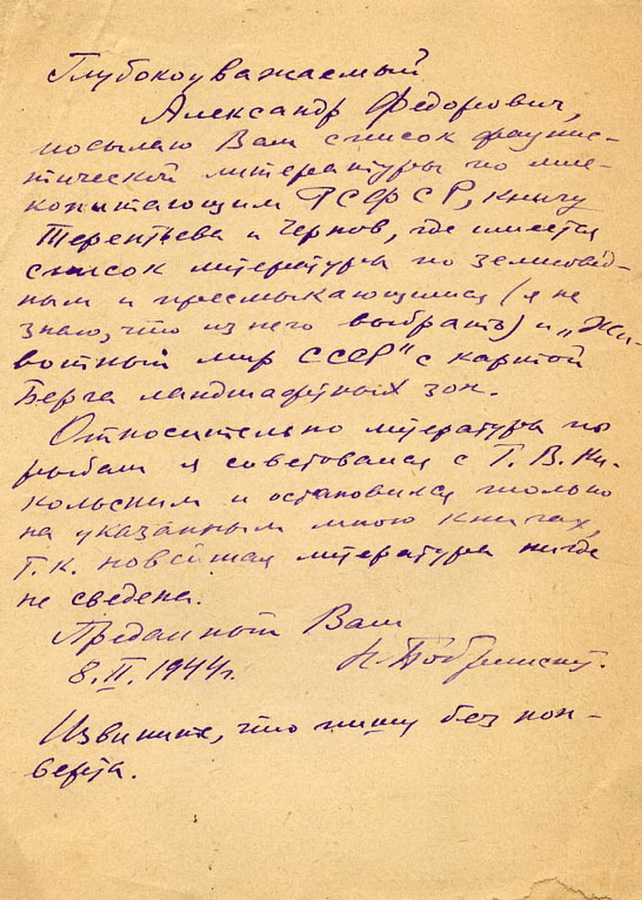 Глубокоуважаемый
Александр Федорович,
посылаю Вам список фаунис-
тической литературы по мле-
копитающим РСФСР, книгу
Терентьева и Чернов, где имеется
список литературы по земновод-
ным и пресмыкающимся (я не
знаю, что из него выбрать) и „Жи-
вотный мир СССР" с картой
Берга ландшафтных зон.
Относительно литературы по
рыбам я советовался с Г. В. Ни-
кольским и остановился только
на указанных мною книгах,
т.к. новейшая литература нигде
не сведена.
Преданный Вам
8.II.1944г. Н. Бобринский.
Извините, что пишу без кон-
верта.